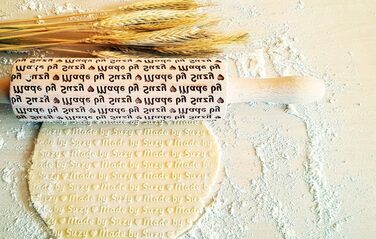 Made by Suzy Made by Suzy Made by Suzy
by Suzy Made by Suzy Made by Suzy
Made by Suzy Made by Suzy Made by Suzy
by Suzy Made by Suzy Made by Suzy
Made by Suzy Made by Suzy Made by Suzy
Made by Suzy Made by Suzy
by Suzy Made by Suzy Made
Made by Suzy Made by Suzy
by Suzy Made by Suzy Made
Made by Suzy Made by Suzy
by Suzy Made by Suzy
Made by Suzy Made by